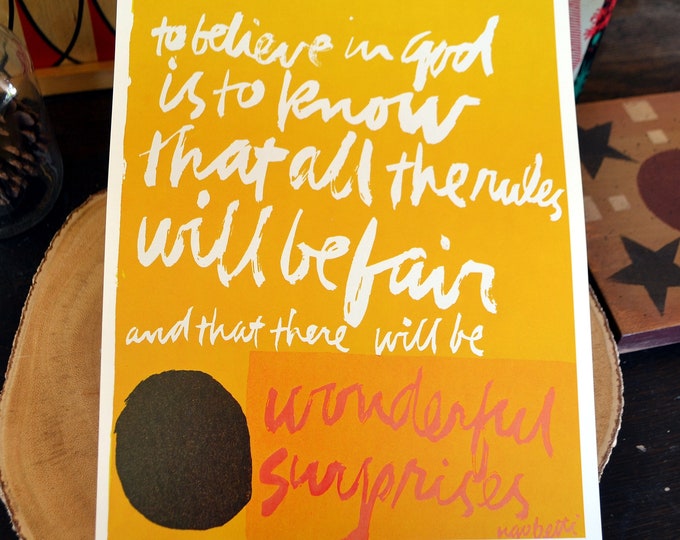 to believe in god
is to know
that all the rules
will be fair
and that there will be
wonderful
surprises